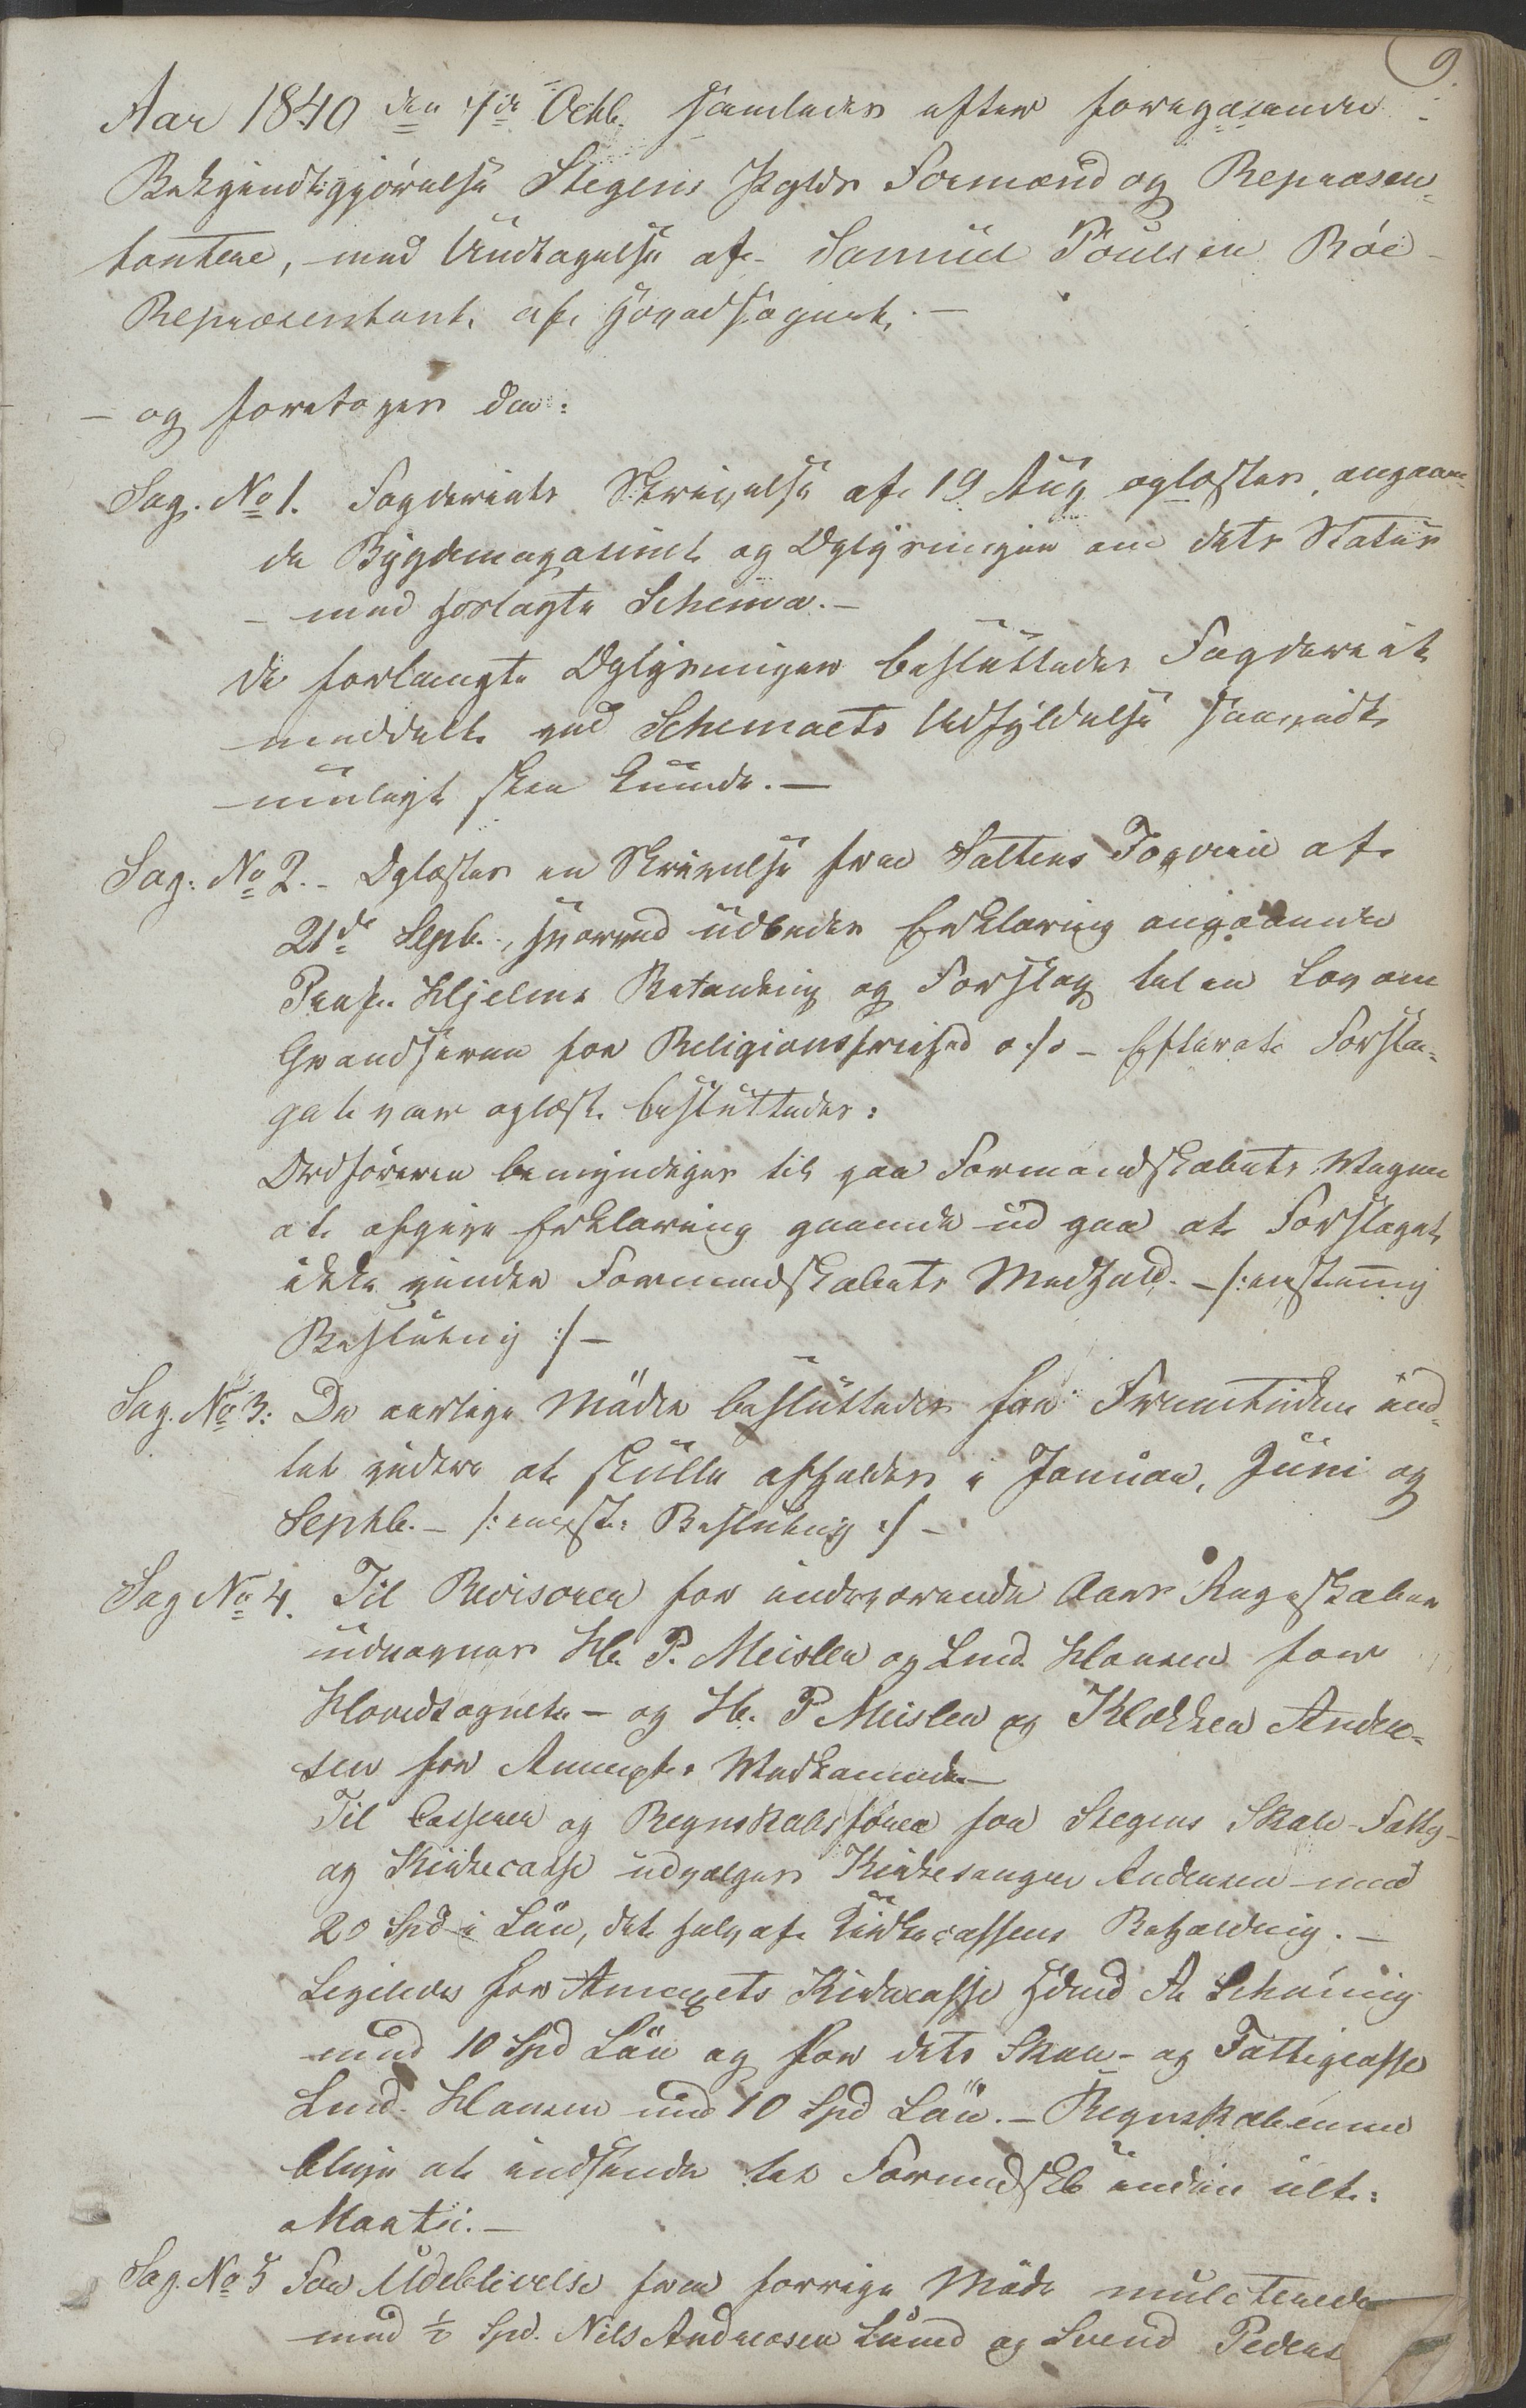 9.
Aar 1840 den 7de Octb. samledes efter foregaaende
Bekjendtgjørelse Stegens Pglds Formænd og Repræsen-
tantere, med Undtagelse af Samuel Poulsen Røe
Repræsentant af Hovedsognet.—
— og foretoges da:
Sag. No 1. Fogderiets Skrivelse af 19 Aug oplæstes, angaaen-
de Bygdemagasinet og Oplysninger om dets Status
— med Schema.—
De forlangte Oplysninger besluttedes Fogderiet
meddelt ved Schemaets Udfyldelse saavidt
muligt skee kunde.—
Sag: No 2.- Oplæstes en Skrivelse fra Saltens Fogderie af
21de Septb., hvorved udbedes Erklæring angaaende
Prof. Hjelms Betænkning og Forslag til en Lov om
Grændserne for Religionsfrihed o.s.v. – Efterat Forsla-
get var oplæst besluttedes:
Ordføreren bemyndiges til paa Formandskabets Vegne
at afgive Erklæring gaaende ud paa at Forslaget
ikke vinder Formandskabets Medhold. – /: eenstemmig
Beslutning :/ –
Sag. No 3: De aarlige Møder besluttedes for Fremtiden ind-
til videre at skulle afholdes i Januar, Juni og
Septb. – /: eenst: Beslutning :/ –
Sag No 4. Til Revisorer for indeværende Aars Regnskaber
udnævnes Hr. P. Meisler og Lmd. Hansen for
Hovedsognet – og Hr. P Meisler og Klokker Andre-
sen for Annexets Vedkommende—
Til Casserer og Regnskabsfører for Stegens Skole- Fattig-
og Kirkecasse udvælges Kirkesanger Andersen med
20 Spd i Løn, det halve af Kirkecassens Beholdning.—
Ligeledes for Annexets Kirkecasse A Schøning
med 10 Spd Løn og for dets Skole- og Fattigcasse
Lmd. Hansen med 10 Spd Løn.— Regnskaberne
blive at indsende til Formdskb inden ult:
Martii.—
Sag. No 5 For Udeblivelse fra forrige Møde mulcteredes
med ½ Spd. Nils Andreasen Lund og Svend Peders